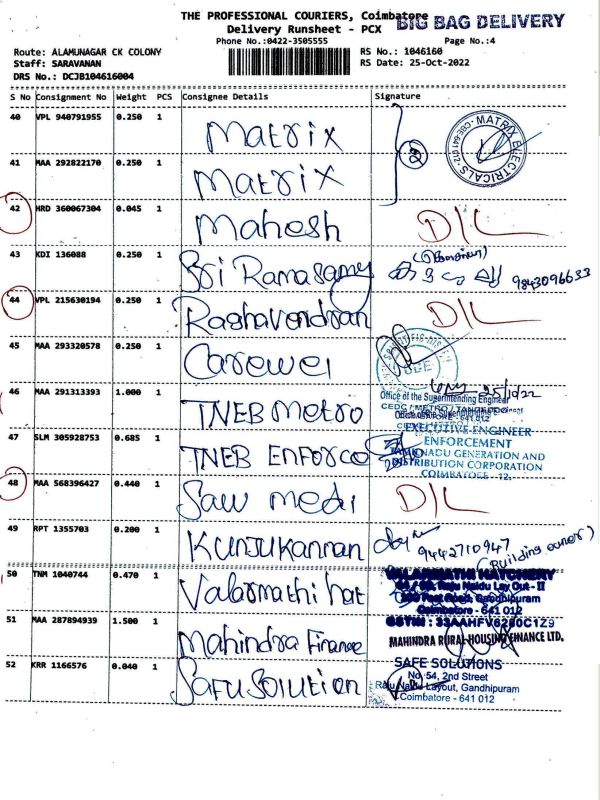 THE PROFESSIONAL COURIERS, Coimbatore
BIG BAG DELIVERY
Delivery Runsheet - PCX
Phone No.:0422-3505555 Page No.:4
Route: ALAMUNAGAR CK COLONY RS No.: 1046160
Staff: SARAVANAN RS Date: 25-Oct-2022
DRS No.: DCJB104616004
S No Consignment No Weight PCS Consignee Details Signature
40 VPL 940791955 0.250 1 Matrix
MATRIX ELECTRICALS CBE-641 012
41 MAA 292822170 0.250 1 Matrix
2
42 MRD 360067304 0.045 1 Mahesh D/L
43 KDI 136088 0.250 1 Sri Ramasamy 9843096633
44 VPL 215630194 0.250 1 Raghavendran D/L
45 MAA 293320578 0.250 1 Carewel
25/10/22
46 MAA 291313393 1.000 1 TNEB Metro
Office of the Superintending Engineer
CEDC / METRO / TANGEDCO
47 SLM 305928753 0.685 1 TNEB ENFORCO
EXECUTIVE ENGINEER
ENFORCEMENT
TAMILNADU GENERATION AND
DISTRIBUTION CORPORATION
COIMBATORE - 12.
48 MAA 568396427 0.440 1 Saw medi D/L
49 RPT 1355703 0.200 1 KUNJUKANNAN 9442710947
(Building owner)
50 TNM 1040744 0.470 1 Valarmathi hat
VALARMATHI HATCHERY
Raju Naidu Lay Out - II
100 Feet Road, Gandhipuram
Coimbatore - 641 012
51 MAA 287894939 1.500 1 Mahindra Finance
MAHINDRA RURAL HOUSING FINANCE LTD.
52 KRR 1166576 0.040 1 SAFU SOLUTION
SAFE SOLUTIONS
No. 54, 2nd Street
Raju Naidu Layout, Gandhipuram
Coimbatore - 641 012